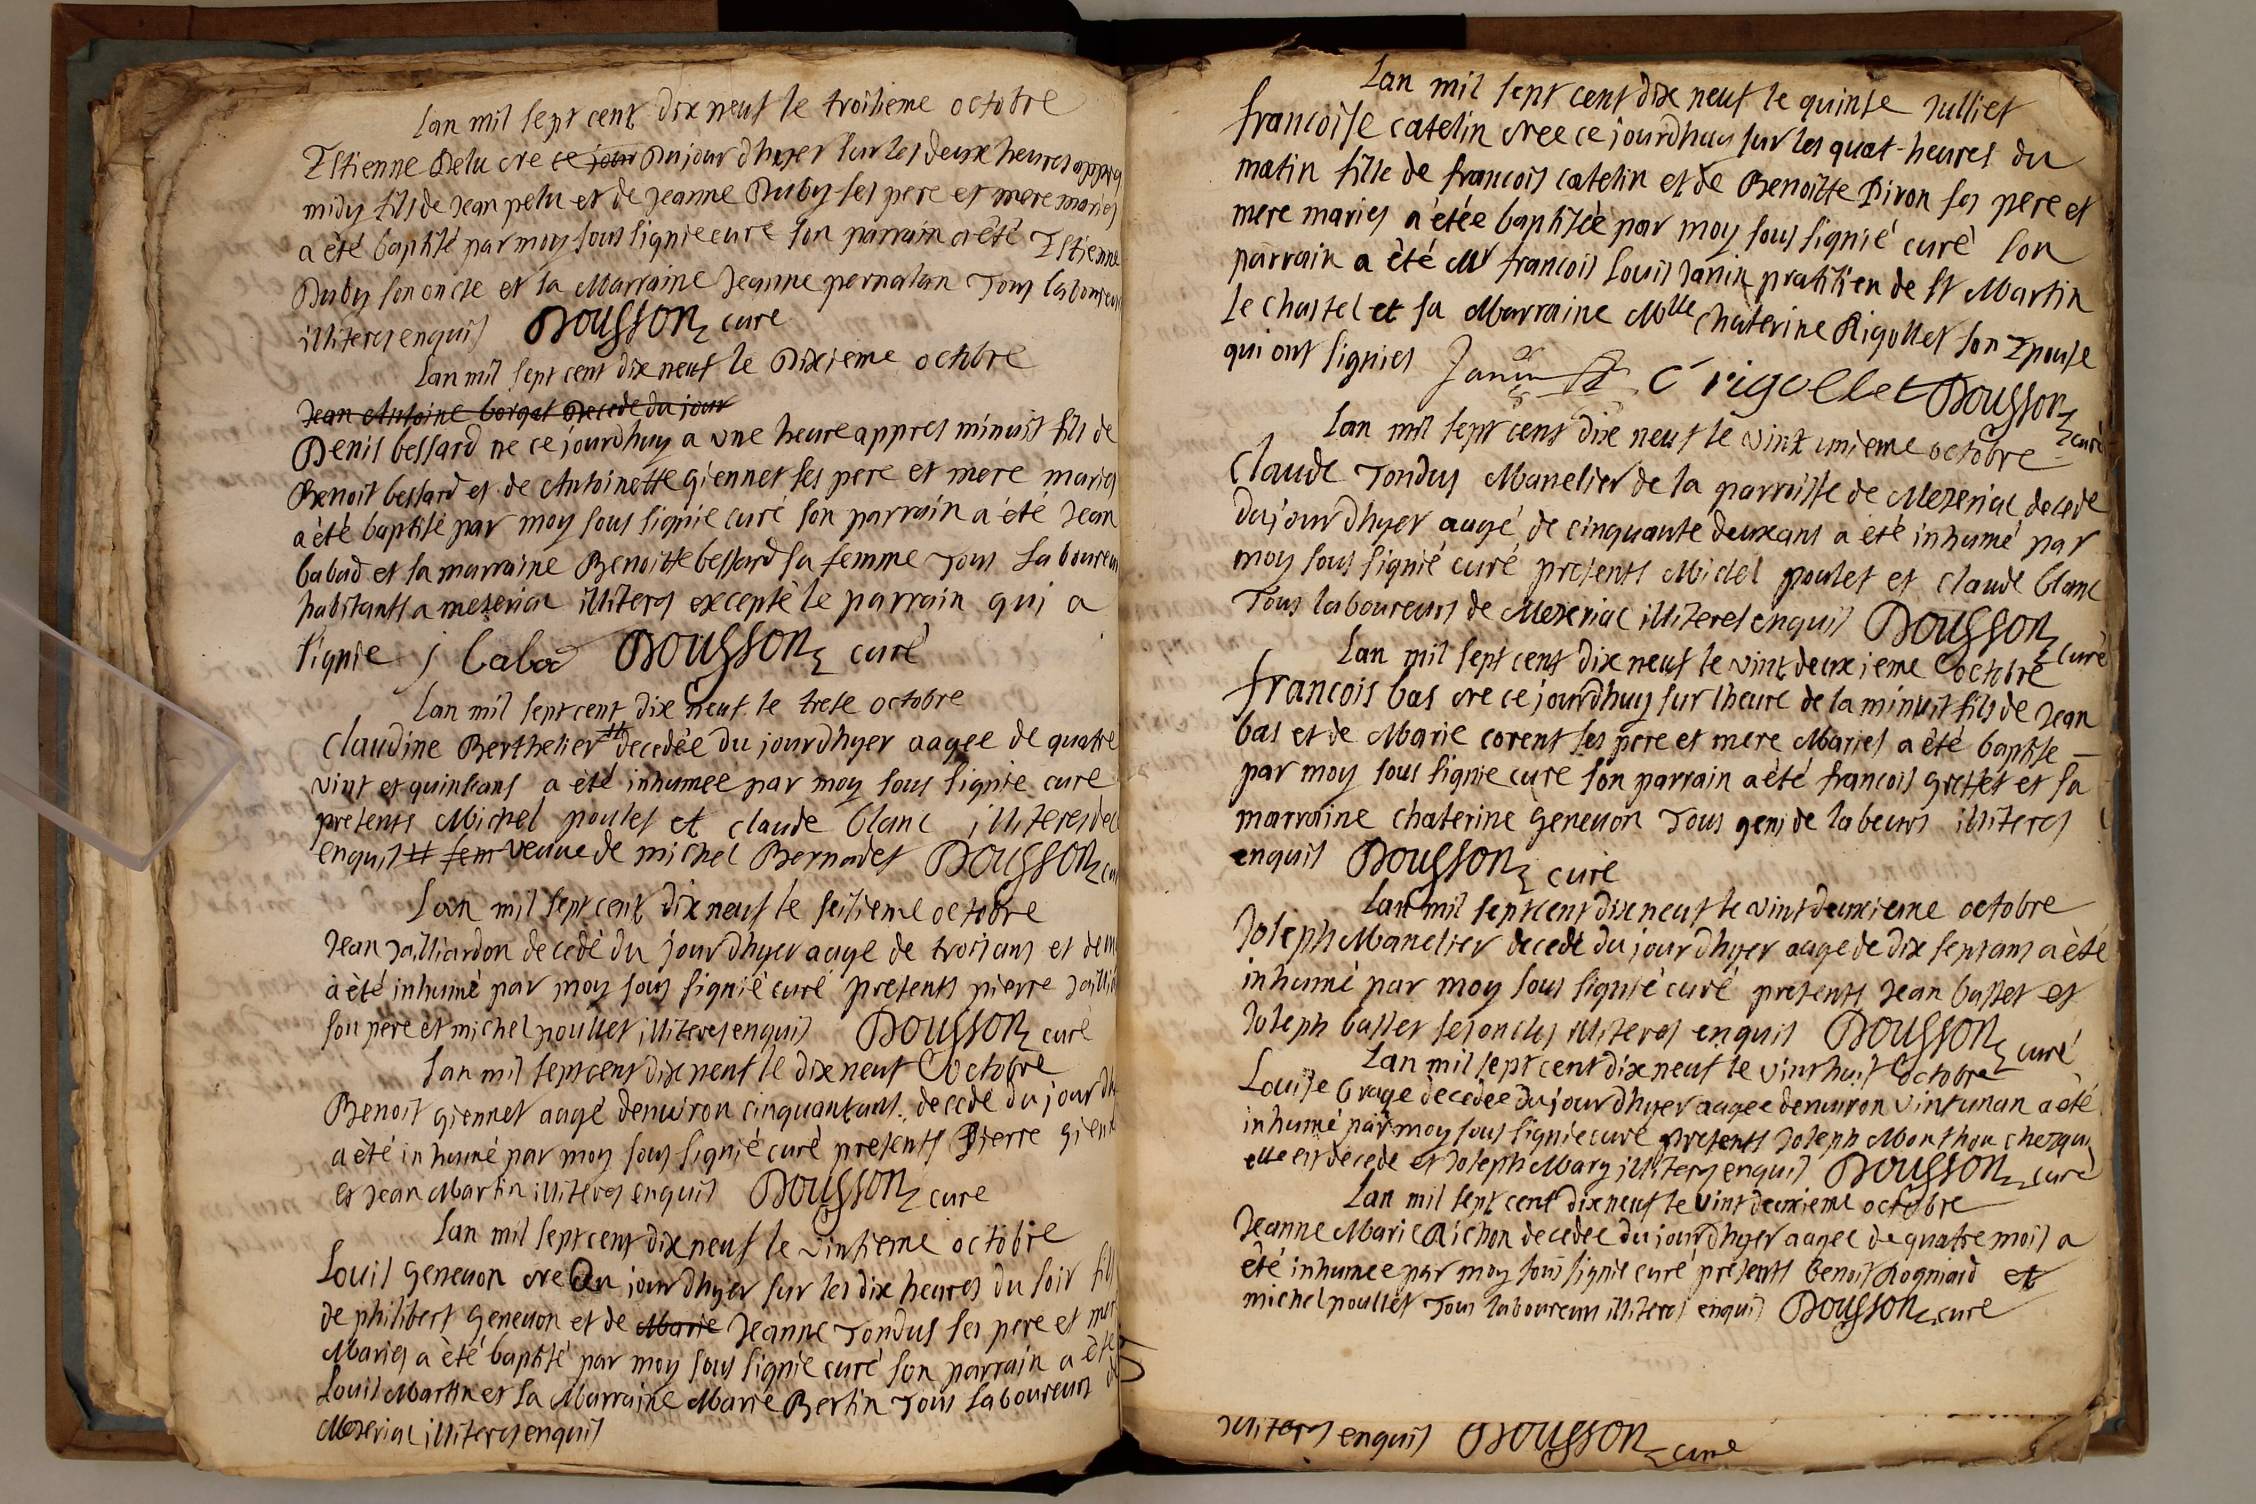 Lan mil sept cent dix neuf le troisieme octobre
Estienne Pelu nre ce jour Dujour dhyer sur les deux heures appres
midy fils de Jean pelu et de Jeanne Duby ses pere et mere maries
a èté baptisé par moy sous signie curé son parrain a èté Estienne
Duby son oncle et sa Marraine Jeanne pernalan Tous laboureurs
illiteres enquis Dousson curé
Lan mil sept cent dix neuf le Dixieme octobre
Jean Antoine borgat Decede du jour
Denis bessard ne ce jourdhuy a une heure appres minuit fils de
Benoit bessard et de Antoinette giennet ses pere et mere maries
a èté baptisé par moy sous signie curé son parrain a èté Jean
babad et sa marraine Benoitte bessard sa femme Tous laboureurs
habitants a meseriac illiteres excepté le parrain qui a
signie j babad Dousson curé
Lan mil sept cent dix neuf le trese octobre
Claudine Berthelier # decedée du jourdhyer aagee de quatre
vint et quinse ans a èté inhumee par moy sous signie curé
presents Michel poulet et claude blanc illiteres de
enquis # fem veuve de michel Bernadet Dousson cu
Lan mil sept cent dix neuf le seisieme octobre
Jean Jailliardon decedé du jourdhyer aage de trois ans et demi
a èté inhumé par moy sous signié curé presents pierre Jaillia
son pere et michel poullet illiteres enquis Dousson curé
Lan mil sept cent dix neuf le dix neuf octobre
Benoit giennet aagé denviron cinquant ans decede du jour dh
a èté inhumé par moy sous signié curé presents Pierre gienn
et Jean Martin illiteres enquis Dousson curé
Lan mil sept cent dix neuf le vintieme octobre
Louis genevon nre Du jourdhyer sur les dix heures du soir fils
de philibert genevon et de Marie Jeanne Tondus ses pere et mer
Maries a èté baptisé par moy sous signie curé son parrain a èté
Louis Martin et sa Marraine Marie Bertin Tous laboureurs de
Meseriac illiteres enquis
Lan mil sept cent dix neuf le quinse Julliet
francoise catelin nree ce jourdhuy sur les quat heures du
matin fille de francois catelin et de Benoitte Piron ses pere et
mere maries a étée baptisée par moy sous signié curé son
parrain a èté Mr francois Louis Janin pratitien de st Martin
le chastel et sa Marraine Mlle Chaterine Rigollet son Epouse
qui ont signies Janin C rigollet Dousson curé
Lan mil sept cent dix neuf le vint unieme octobre
Claude Tondus Manelier de la parroisse de Meseriac decede
dujour dhyer aagé de cinquante deux ans a èté inhumé par
moy sous signié curé presents Michel poulet et claude blanc
Tous laboureurs de Meseriac illiteres enquis Dousson curé
Lan mil sept cent dix neuf le vint deuxieme octobre
francois bas nre ce jourdhuy sur lheure de la minuit fils de Jean
bas et de Marie corent ses pere et mere Maries a èté baptise
par moy sous signie curé son parrain a èté francois greffet et sa
marraine chaterine genevon Tous gens de labeurs illiteres
enquis Dousson curé
Lan mil sept cent dix neuf le vint deuxieme octobre
Joseph Manelier decedé du jour dhyer aage de dix sept ans a èté
inhumé par moy sous signié curé presents Jean basset et
Joseph basset ses oncles illiteres enquis Dousson curé
Lan mil sept cent dix neuf le vint huit octobre
Louise brage decedée Dujour dhyer aagee denviron vint un an a èté
inhumé par moy sous signie curé presents Joseph Monthou chez qui
elle est decede et Joseph Mary illiteres enquis Dousson curé
Lan mil sept cent dix neuf le vint deuxieme octobre
Jeanne Marie Michon decedee dujour dhyer aagee de quatre mois a
été inhumee par moy sous signie curé présents benoit Rogniard et
michel poullet Tous laboureurs illiteres enquis Dousson curé
illiteres enquis Dousson curé